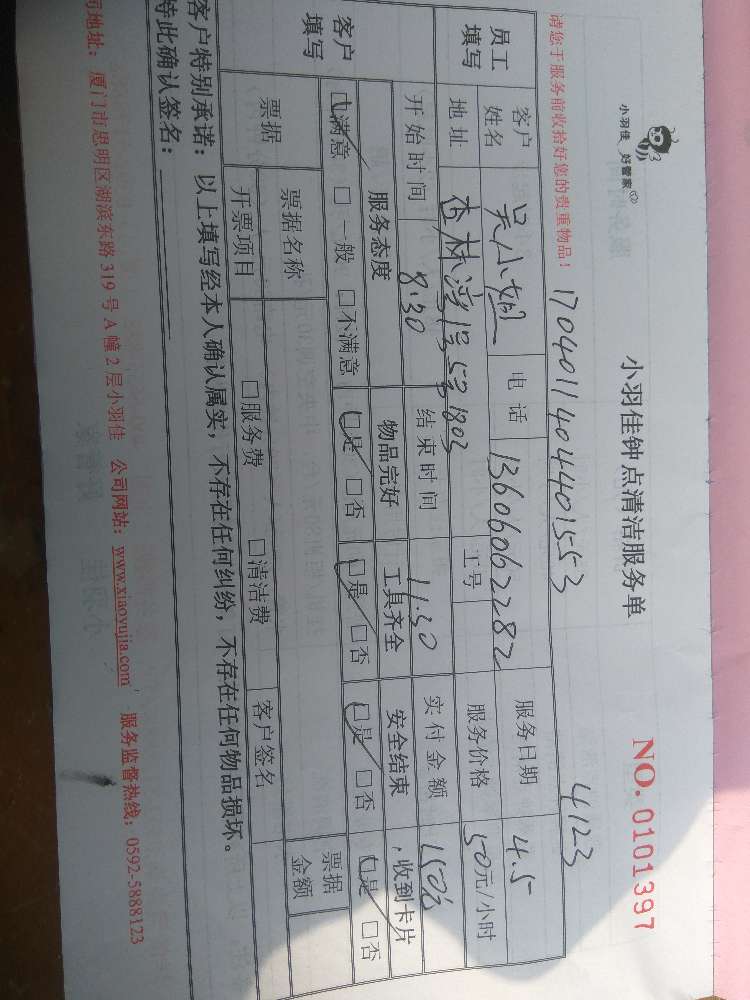 小羽佳 好管家
小羽佳钟点清洁服务单
NO. 0101397
请您于服务前收拾好您的贵重物品!
17040114044015​53
4123
员工填写 客户姓名 吴小姐 电话 13606062282 服务日期 4.5
地址 杏林湾1号5号1803 工号 服务价格 50元/小时
客户填写 开始时间 8:30 结束时间 11:30 实付金额 150元
服务态度 物品完好 工具齐全 安全结束 ,收到卡片
☑满意 □一般 □不满意 ☑是 □否 ☑是 □否 ☑是 □否 ☑是 □否
票据 票据名称 票据金额
开票项目 □服务费 □清洁费 客户签名
客户特别承诺:以上填写经本人确认属实,不存在任何纠纷,不存在任何物品损坏。
特此确认签名:
司地址:厦门市思明区湖滨东路319号A幢2层小羽佳 公司网站:www.xiaoyujia.com 服务监督热线:0592-5888123